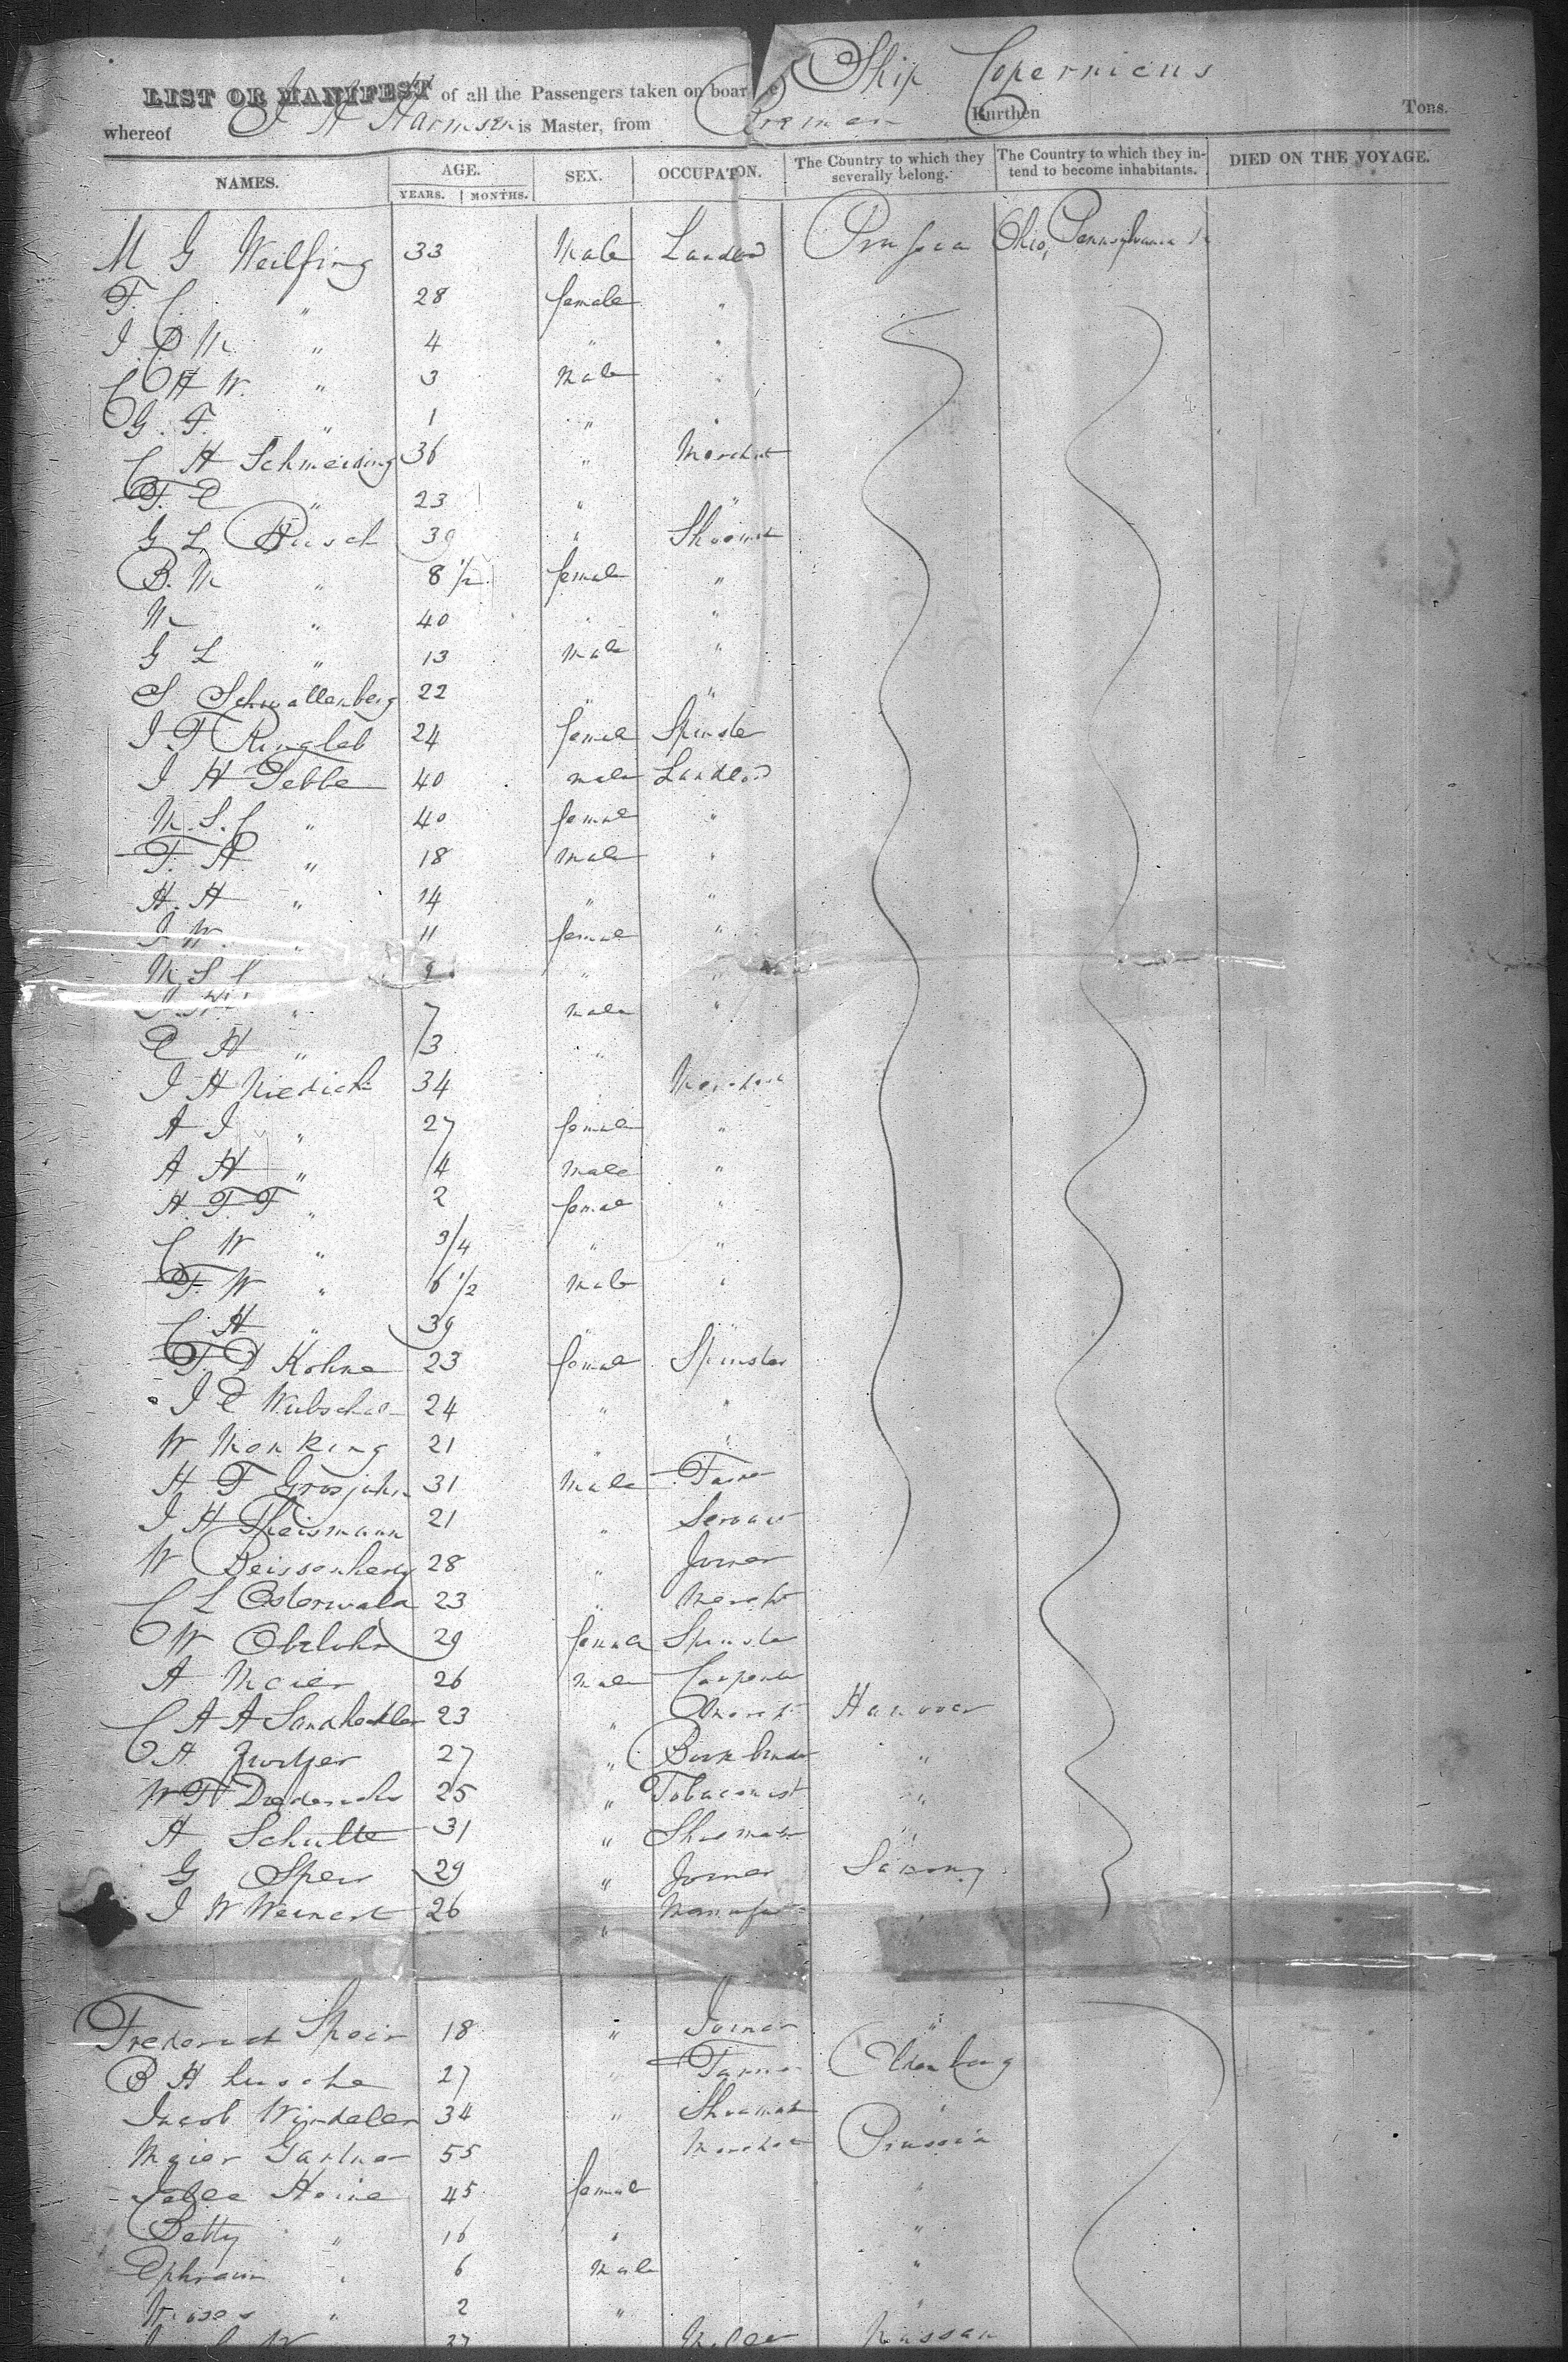 LIST OR MANIFEST of all the Passengers taken on board Ship Copernicus
whereof J H Harmsen is Master, from Bremen Burthen Tons.
NAMES. AGE. YEARS. MONTHS. SEX. OCCUPATON. The Country to which they severally belong. The Country to which they intend to become inhabitants. DIED ON THE VOYAGE.
M G Weilfing 33 Male Landlod Prussia Ohio, Pennsylvania
F. C. " 28 female "
I. C M " 4 " "
C H W. " 3 Male "
G. F. " 1 " "
C H Schmeising 36 " Merchnt
F. C " 23 " "
G L Busch 39 " Shoemk
B. M " 8 1/2 female "
M " 40 " "
G L " 13 Male "
S Schwallenberg 22 " "
I F Ringleb 24 female Spinster
I H Tebbe 40 male Landlod
M. S. C " 40 female "
F. H " 18 Male "
H. H " 14 " "
I W. " 11 female "
M S C 9 " "
" 7 Male "
C H " 3 "
I H Niedick 34 Merchant
A I " 27 female "
A H " 4 Male "
H. F. F " 2 female "
C W " 3/4 " "
F. W " 6 1/2 Male "
C H " 39
F. Kohne 23 female Spinster
I C 24 " "
W Monking 21 " "
H F Grosjohn 31 Male Farmer
I H Theismann 21 " Servant
W Beissenherz 28 " Joiner
C L Osterwald 23 " Mercht
W 29 female Spinster
A Meier 26 Male Carpenter
C A A 23 " Mercht Hanover
A. 27 " Bookbinder "
W F 25 " Tobaconist "
H Schulte 31 " Shoemaker "
G Speir 29 " Joiner Saxony
I W Weinert 26 "
Frederick Speir 18 " Joiner "
B H Lusche 27 " Farmer Oldenburg
Jacob Windeler 34 " Shoemak "
Meier Gartner 55 Merchat Prussia
Heine 45 female "
Betty " 16 " "
Ephraim " 6 Male "
Moses " 2 " "
37 Nassau